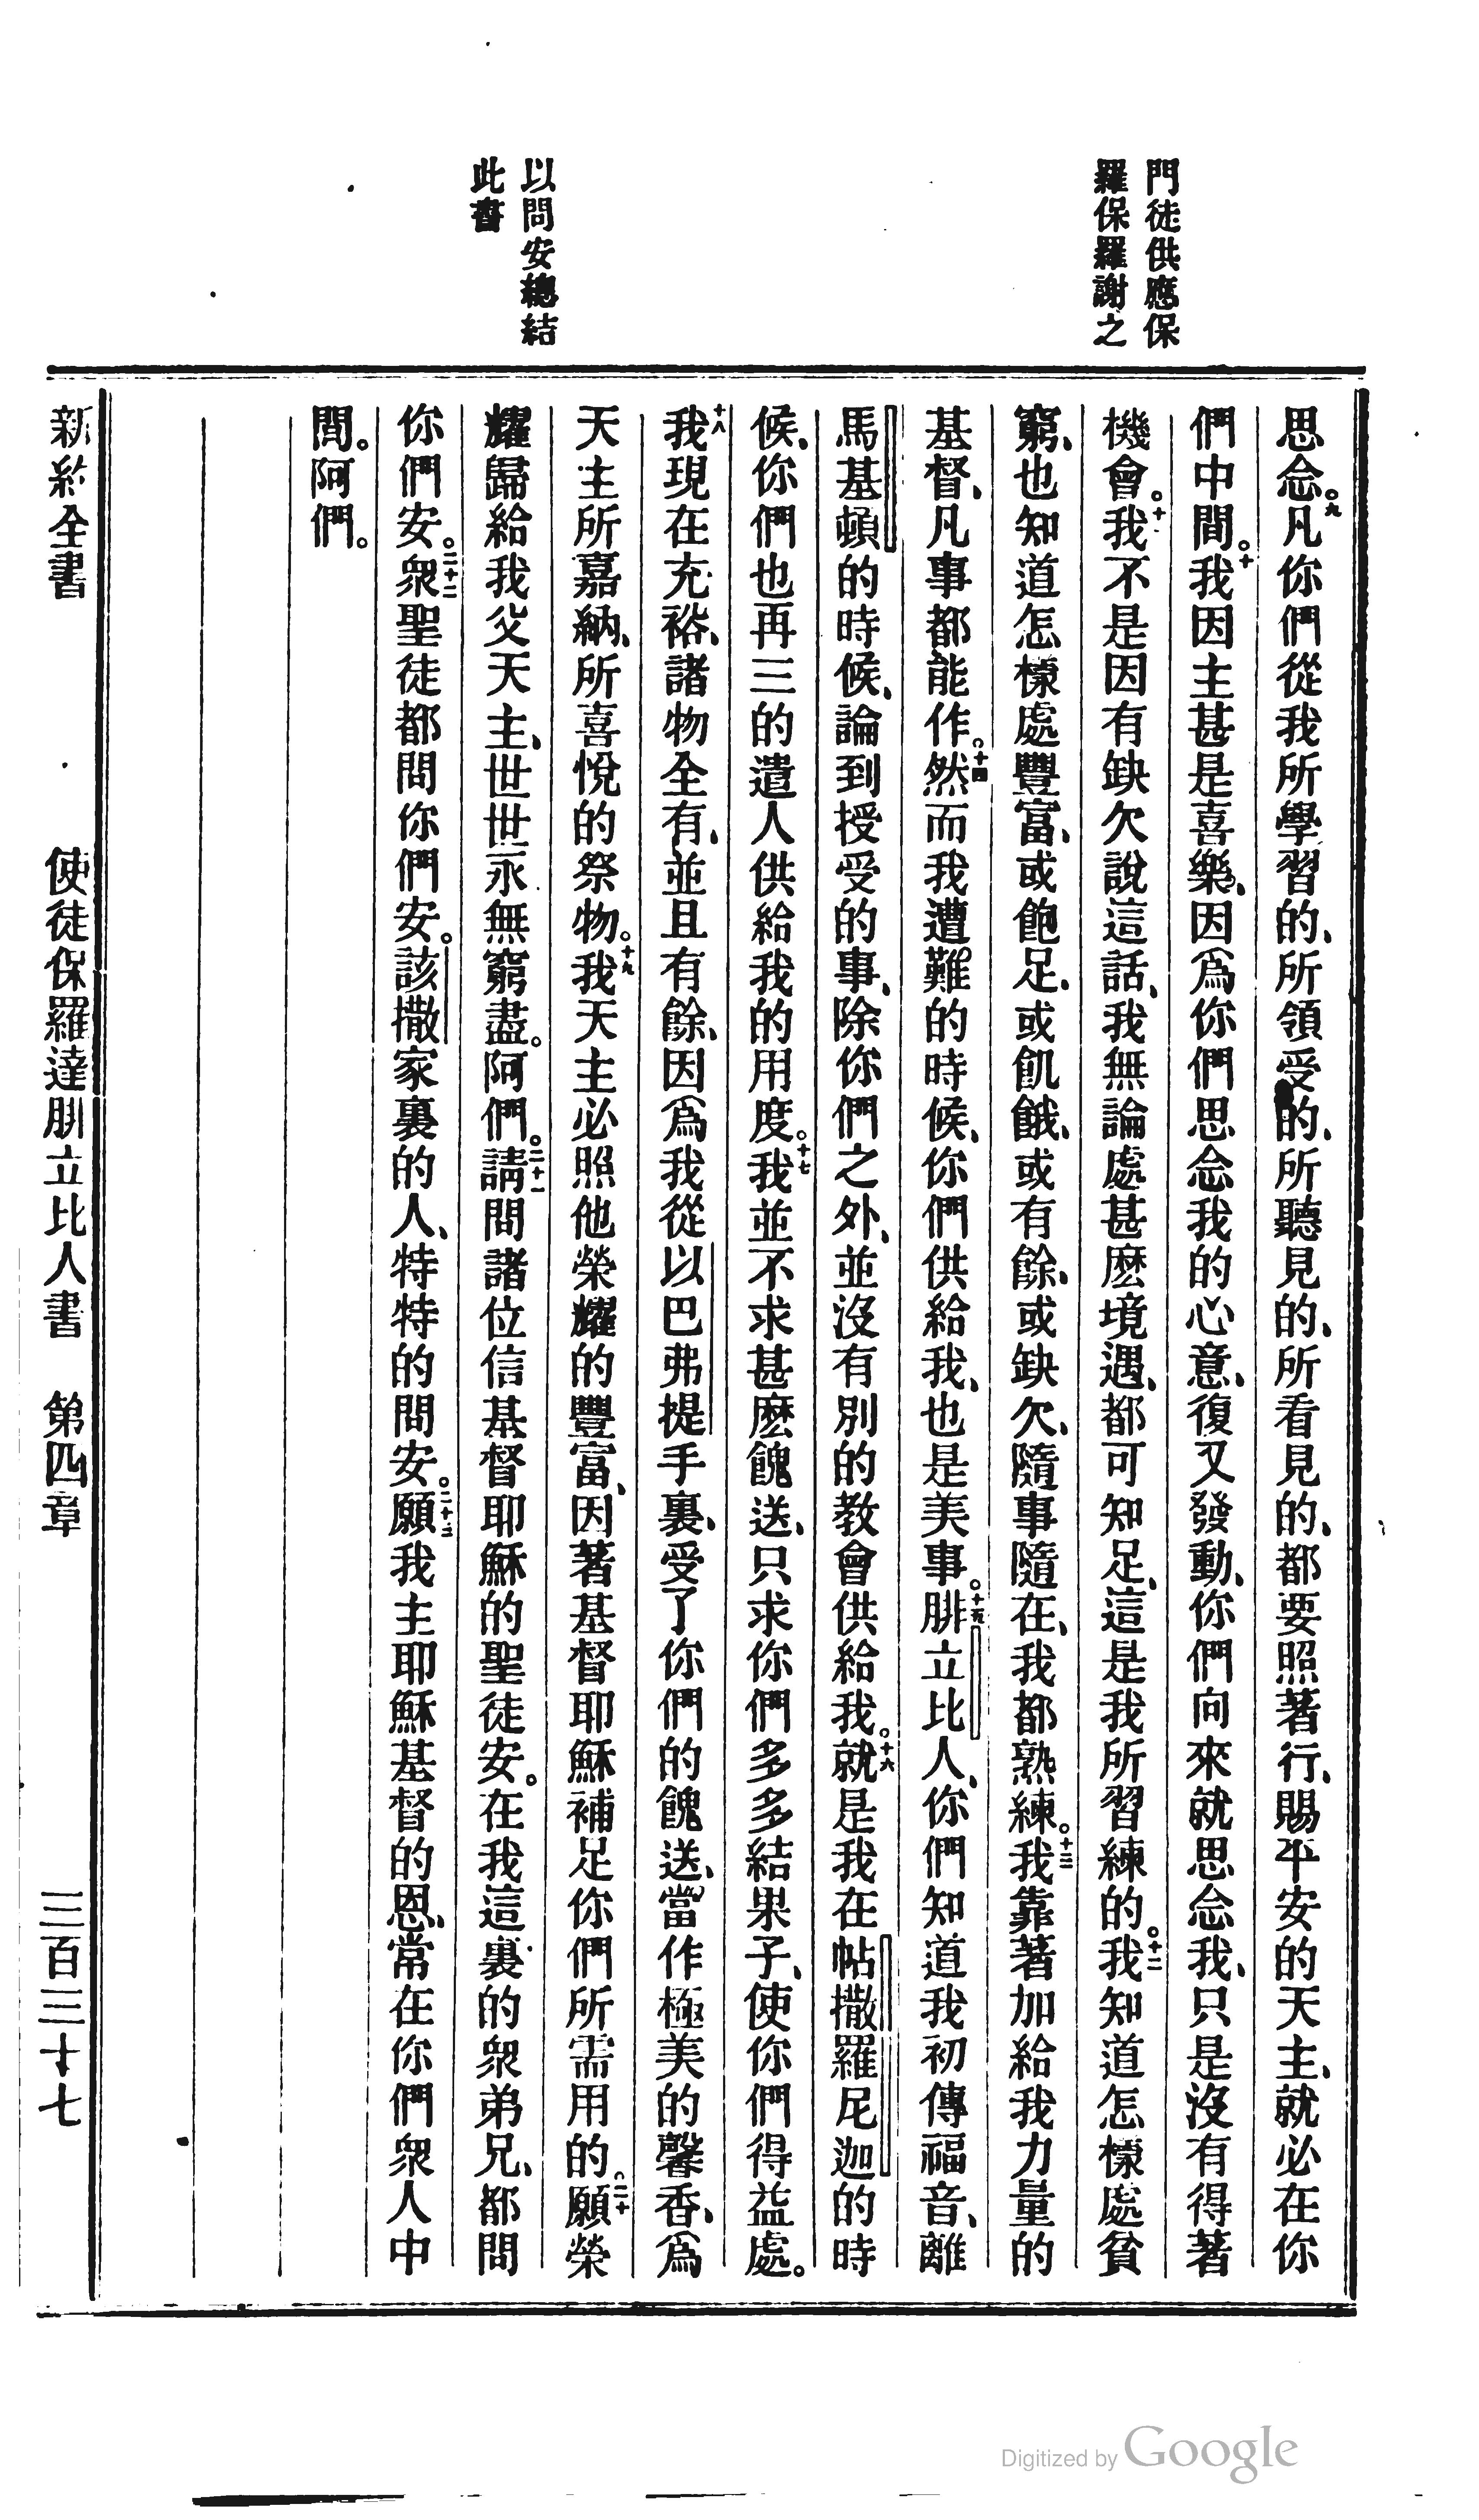 門徒供應保
羅保羅謝之
以問安總結
此書
思念。九凡你們從我所學習的、所領受的、所聽見的、所看見的、都要照著行、賜平安的天主、就必在你
們中間。十我因主甚是喜樂、因爲你們思念我的心意、復又發動、你們向來就思念我、只是沒有得著
機會。十一我不是因有缺欠說這話、我無論處甚麽境遇、都可知足、這是我所習練的。十二我知道怎樣處貧
窮、也知道怎樣處豐富、或飽足、或飢餓、或有餘、或缺欠、隨事隨在、我都熟練。十三我靠著加給我力量的
基督、凡事都能作。十四然而我遭難的時候、你們供給我、也是美事。十五腓立比人、你們知道我初傳福音、離
馬基頓的時候、論到授受的事、除你們之外、並沒有別的教會供給我。十六就是我在帖撒羅尼迦的時
候、你們也再三的遣人供給我的用度。十七我並不求甚麽餽送、只求你們多多結果子、使你們得益處。
十八我現在充裕、諸物全有、並且有餘、因爲我從以巴弗提手裏、受了你們的餽送、當作極美的馨香、爲
天主所嘉納、所喜悅的祭物。十九我天主必照他榮耀的豐富、因著基督耶穌補足你們所需用的。二十願榮
耀歸給我父天主、世世永無窮盡。阿們。二十一請問諸位信基督耶穌的聖徒安。在我這裏的衆弟兄、都問
你們安。二十二衆聖徒都問你們安。該撒家裏的人、特特的問安。二十三願我主耶穌基督的恩、常在你們衆人中
間。阿們。
新約全書 使徒保羅達腓立比人書 第四章 三百三十七
Digitized by Google